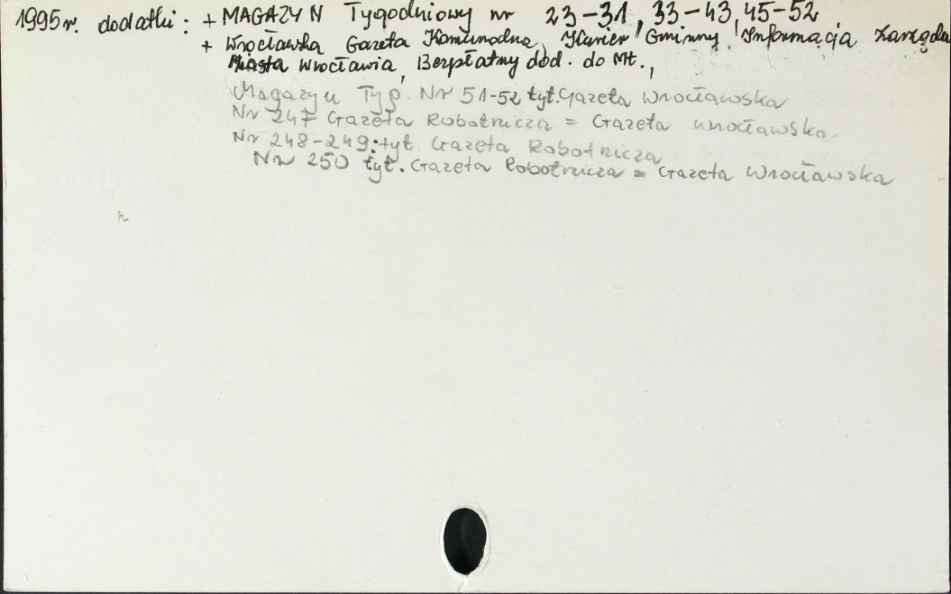 1995r. dodatki: + MAGAZYN Tygodniowy nr 23-31, 33-43, 45-52
+ Wrocławska Gazeta Komunalna, Kurier Gminny, Informacja Zarządu
Miasta Wrocławia, Bezpłatny dod. do Mt.,
Magazyn Tyg. Nr 51-52 tyt. Gazeta Wrocławska
Nr 247 Gazeta Robotnicza = Gazeta Wrocławska
Nr 248-249: tyt. Gazeta Robotnicza
Nr 250 tyt. Gazeta Robotnicza = Gazeta Wrocławska